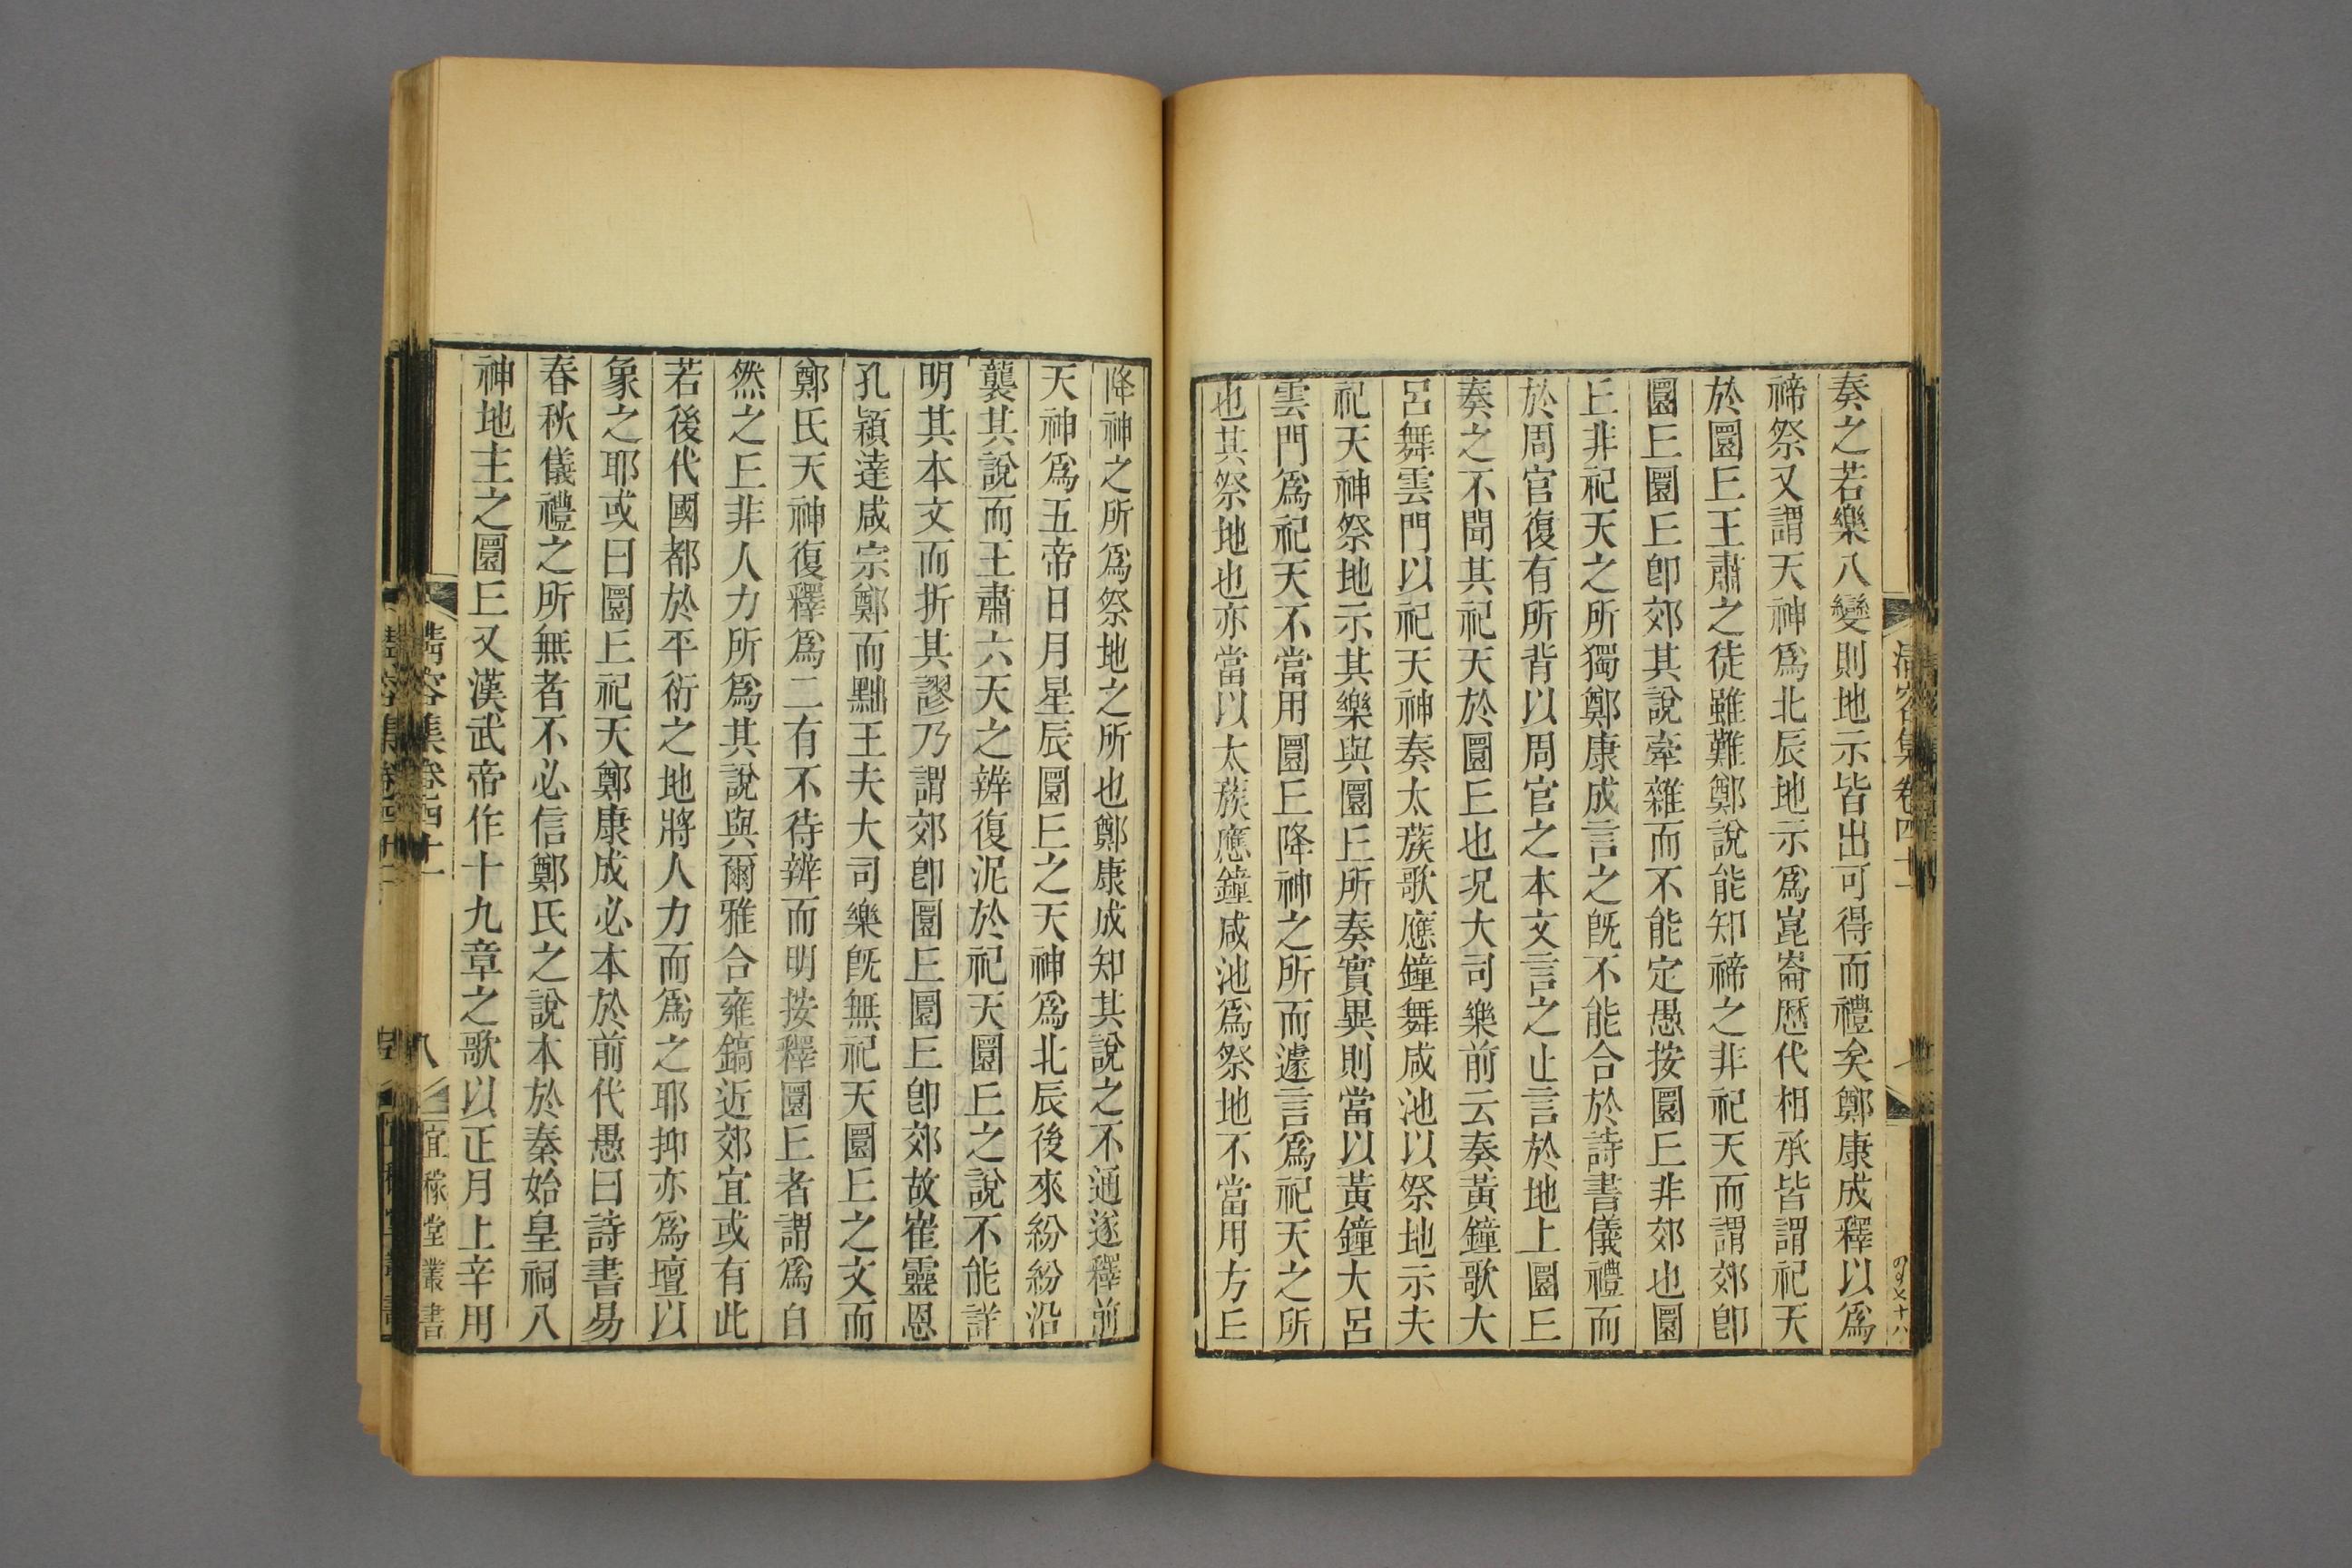 清容集卷四十一
奏之若樂八變則地示皆出可得而禮矣鄭康成釋以爲
禘祭又謂天神爲北辰地示爲崑崙歷代相承皆謂祀天
於圜𠀉王肅之徒雖難鄭說能知禘之非祀天而謂郊卽
圜𠀉圜𠀉卽郊其說牽雜而不能定愚按圜𠀉非郊也圜
𠀉非祀天之所獨鄭康成言之旣不能合於詩書儀禮而
於周官復有所背以周官之本文言之止言於地上圜𠀉
奏之不聞其祀天於圜𠀉也况大司樂前云奏黃鐘歌大
呂舞雲門以祀天神奏太蔟歌應鐘舞咸池以祭地示夫
祀天神祭地示其樂與圜𠀉所奏實異則當以黃鐘大呂
雲門爲祀天不當用圜𠀉降神之所而遽言爲祀天之所
也其祭地也亦當以太蔟應鐘咸池爲祭地不當用方𠀉
降神之所爲祭地之所也鄭康成知其說之不通遂釋前
天神爲五帝日月星辰圜𠀉之天神爲北辰後來紛紛沿
襲其說而王肅六天之辨復泥於祀天圜𠀉之說不能詳
明其本文而折其謬乃謂郊卽圜𠀉圜𠀉卽郊故崔靈恩
孔穎達咸宗鄭而黜王夫大司樂旣無祀天圜𠀉之文而
鄭氏天神復釋爲二有不待辨而明按釋圜𠀉者謂爲自
然之𠀉非人力所爲其說與爾雅合雍鎬近郊宜或有此
若後代國都於平衍之地將人力而爲之耶抑亦爲壇以
象之耶或曰圜𠀉祀天鄭康成必本於前代愚曰詩書易
春秋儀禮之所無者不必信鄭氏之說本於秦始皇祠八
神地主之圜𠀉又漢武帝作十九章之歌以正月上辛用
清容集卷四十一
八
宜稼堂叢書